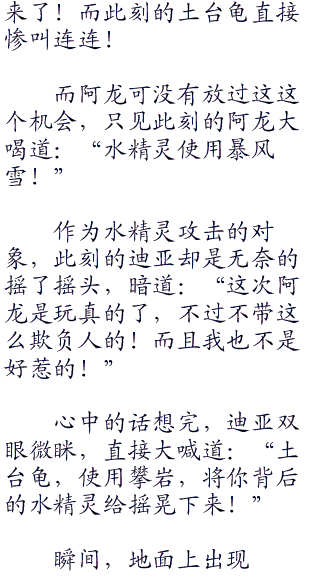 来了！而此刻的土台龟直接
惨叫连连！
而阿龙可没有放过这这
个机会，只见此刻的阿龙大
喝道：“水精灵使用暴风
雪！”
作为水精灵攻击的对
象，此刻的迪亚却是无奈的
摇了摇头，暗道：“这次阿
龙是玩真的了，不过不带这
么欺负人的！而且我也不是
好惹的！”
心中的话想完，迪亚双
眼微眯，直接大喊道：“土
台龟，使用攀岩，将你背后
的水精灵给摇晃下来！”
瞬间，地面上出现